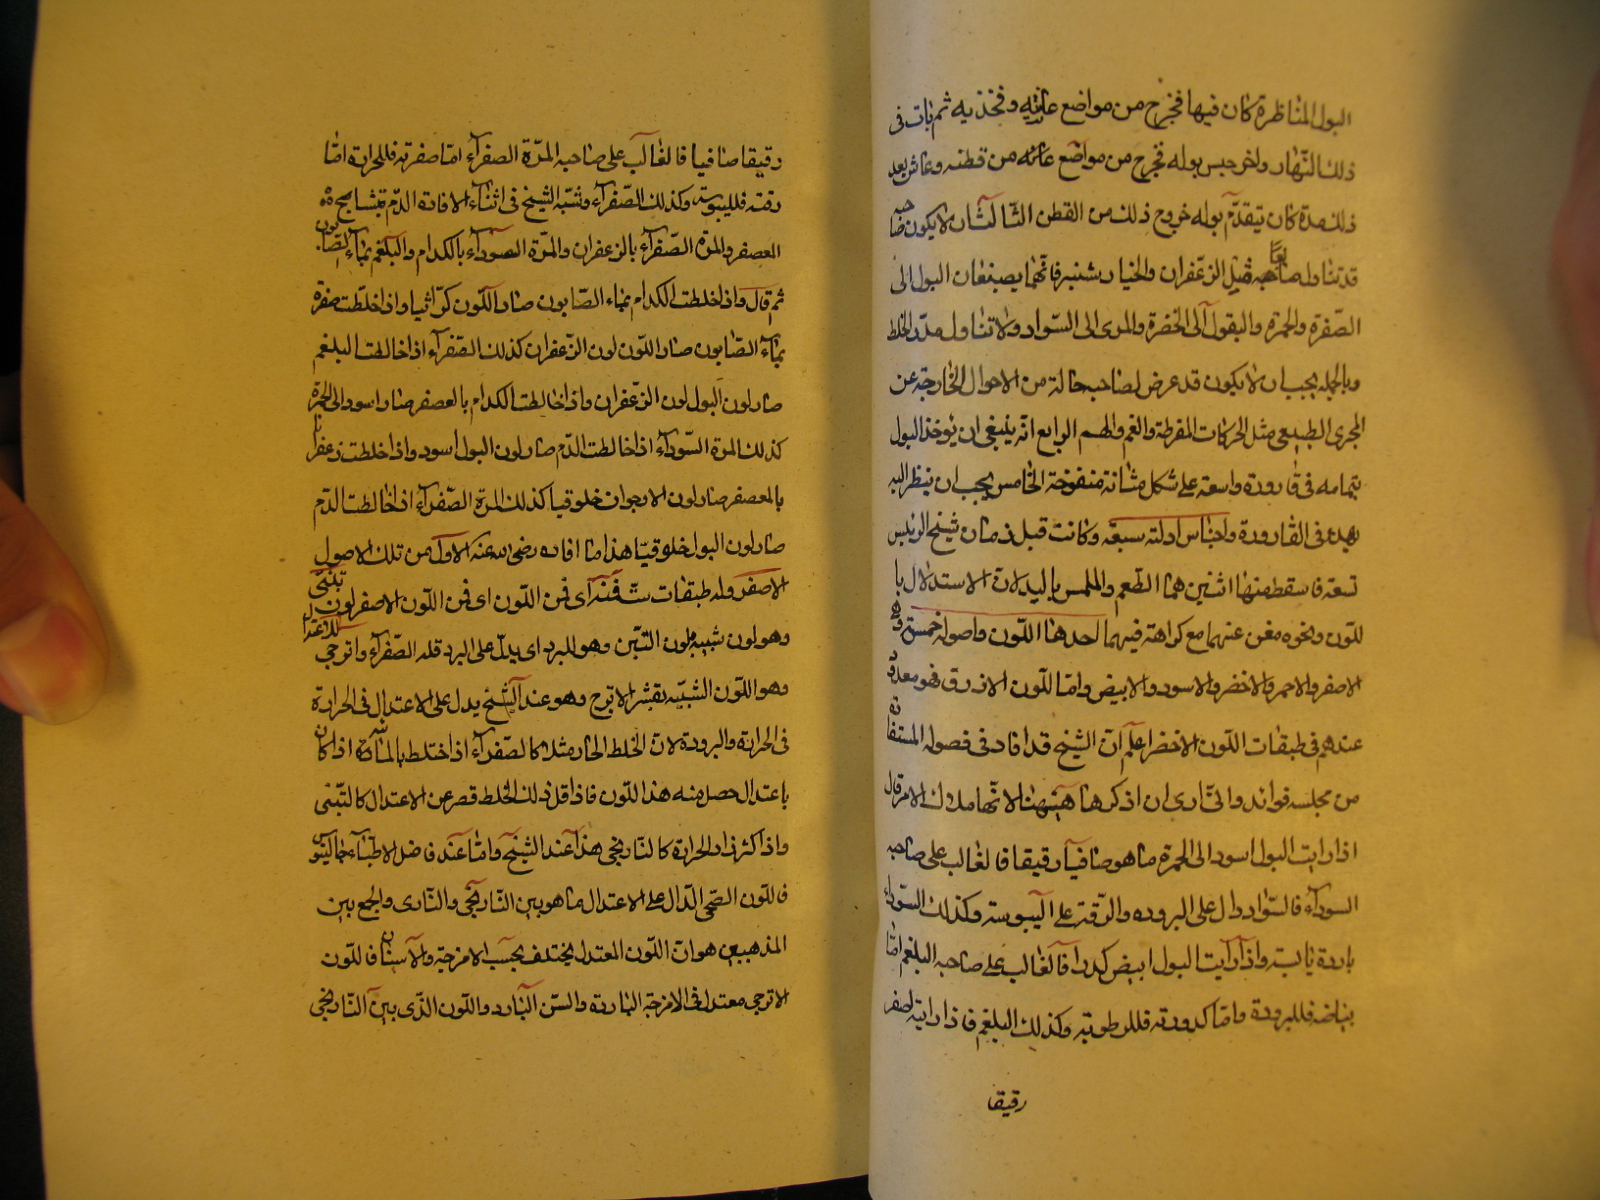 البول المناظرة كان فيها فخرج من مواضع عانته وفخذيه ثم بات فى
ذلك النهار ولخر حبس بوله تخرج من مواضع عانته من قطنه وعاش بعد
ذلك مدة كان يتقدم بوله خروج ذلك من القطن الثالث ان لا يكون صاحبه
قد تناول صابغا مثل الزعفران والخيار شنبر فانهما يصبغان البول الى
الصفرة والحمرة والبقول الى الخضرة والمرى الى السواد ولا تناول مدر الخلط
وبالجملة يجب ان لا يكون قد عرض لصاحبه حالة من الاحوال الخارجة عن
المجرى الطبيعى مثل الحركات المفرطة والغم والهم الرابع انه ينبغى ان يؤخذ البول
بتمامه فى قارورة واسعة على شكل مثانة منفوخة الخامس يجب ان ينظر اليه
فى القارورة واجناس ادلته سبعة وكانت قبل زمان شيخ الرئيس
تسعة فاسقط منها اثنين هما الطعم والملمس الاستدلال با
للون ونحوه مغن عنهما مع كراهة فيهما احدها اللون واصوله خمسة وهو
الاصفر والاحمر والاخضر والاسود والابيض واما اللون الازرق فهو معدود
عندهم فى طبقات اللون الاخضر اعلم ان الشيخ قد افاد فى فصوله المستفادة
من مجلسه فوائد وانى اذكرها ههنا لانها ملاك الامر قال
اذا رايت البول اسود الى الحمرة ما هو صافيا رقيقا فالغالب على صاحبه
السوداء فالسواد دال على البرودة والرقة على اليبوسة وكذلك السوداء
باردة يابسة واذا رايت البول ابيض كدرا فالغالب على صاحبه البلغم اما
بياضه فللبرودة واما كدورته فللرطوبة وكذلك البلغم فاذا رايته اصفر
رقيقا
رقيقا صافيا فالغالب على صاحبه المرة الصفراء اما صفرته فللحرارة اما
رقته فلليبوسة وكذلك الصفراء وشبه الشيخ فى اثناء الافادة الدم
العصفر والمرة الصفراء بالزعفران والمرة السوداء بالكدام والبلغم بماء الصابون
ثم قال واذا خلطت الكدام بماء الصابون صار اللون كراثيا واذا خلطت صفرة
بماء الصابون صار اللون لون الزعفران كذلك الصفراء اذا خالطت البلغم
صار لون البول لون الزعفران واذا خالطت الكدام بالعصفر صار اسود الى الحمرة
كذلك المرة السوداء اذا خالطت الدم صار لون البول اسود واذا خلطت زعفرانا
بالعصفر صار لون الارجوان خلوقيا كذلك المرة الصفراء اذا خالطت الدم
صار لون البول خلوقيا هذا ما افاده رضى الله عنه الاول من تلك الاصول
الاصفر وله طبقات ستة فمنه اى فمن اللون اى فمن اللون الاصفر لون تبنى
وهو لون شبيه بلون التبن وهو للبرد اى يدل على البرد قلة الصفراء واترجى
وهو اللون الشبيه بقشر الاترج وهو عند الشيخ يدل على الاعتدال فى الحرارة
فى الحرارة والبرودة لان الخلط الحار مثلا كالصفراء اذا اختلط بالمائية اذا كان
باعتدال حصل منه هذا اللون فاذا قل ذلك الخلط قصر عن الاعتدال كالتبنى
واذا كثر زاد الحرارة كالنارنجى هذا عند الشيخ واما عند فاضل الاطباء جالينوس
فاللون الصحى الدال على الاعتدال ما هو بين النارنجى والنارى والجمع بين
المذهبين هو ان اللون المعتدل يختلف بحسب الامزجة والاسنان فاللون
الاترجى معتدل فى الامزجة الباردة والسن البارد واللون الذى بين النارنجى